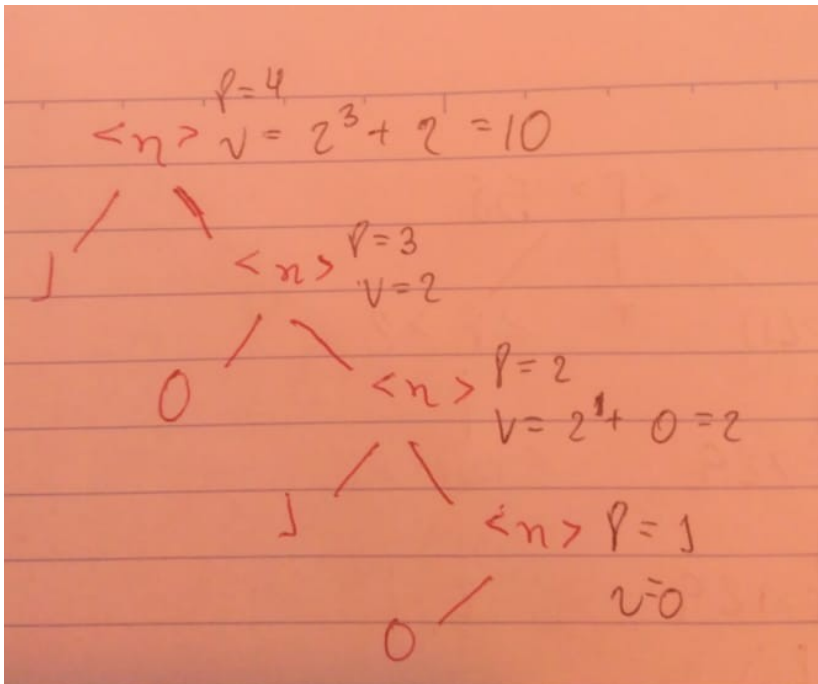 P=4
<n> V = 2³ + 2 = 10
1 <n> P=3
V=2
0 <n> P=2
V= 2¹+ 0 =2
1 <n> P=1
v=0
0